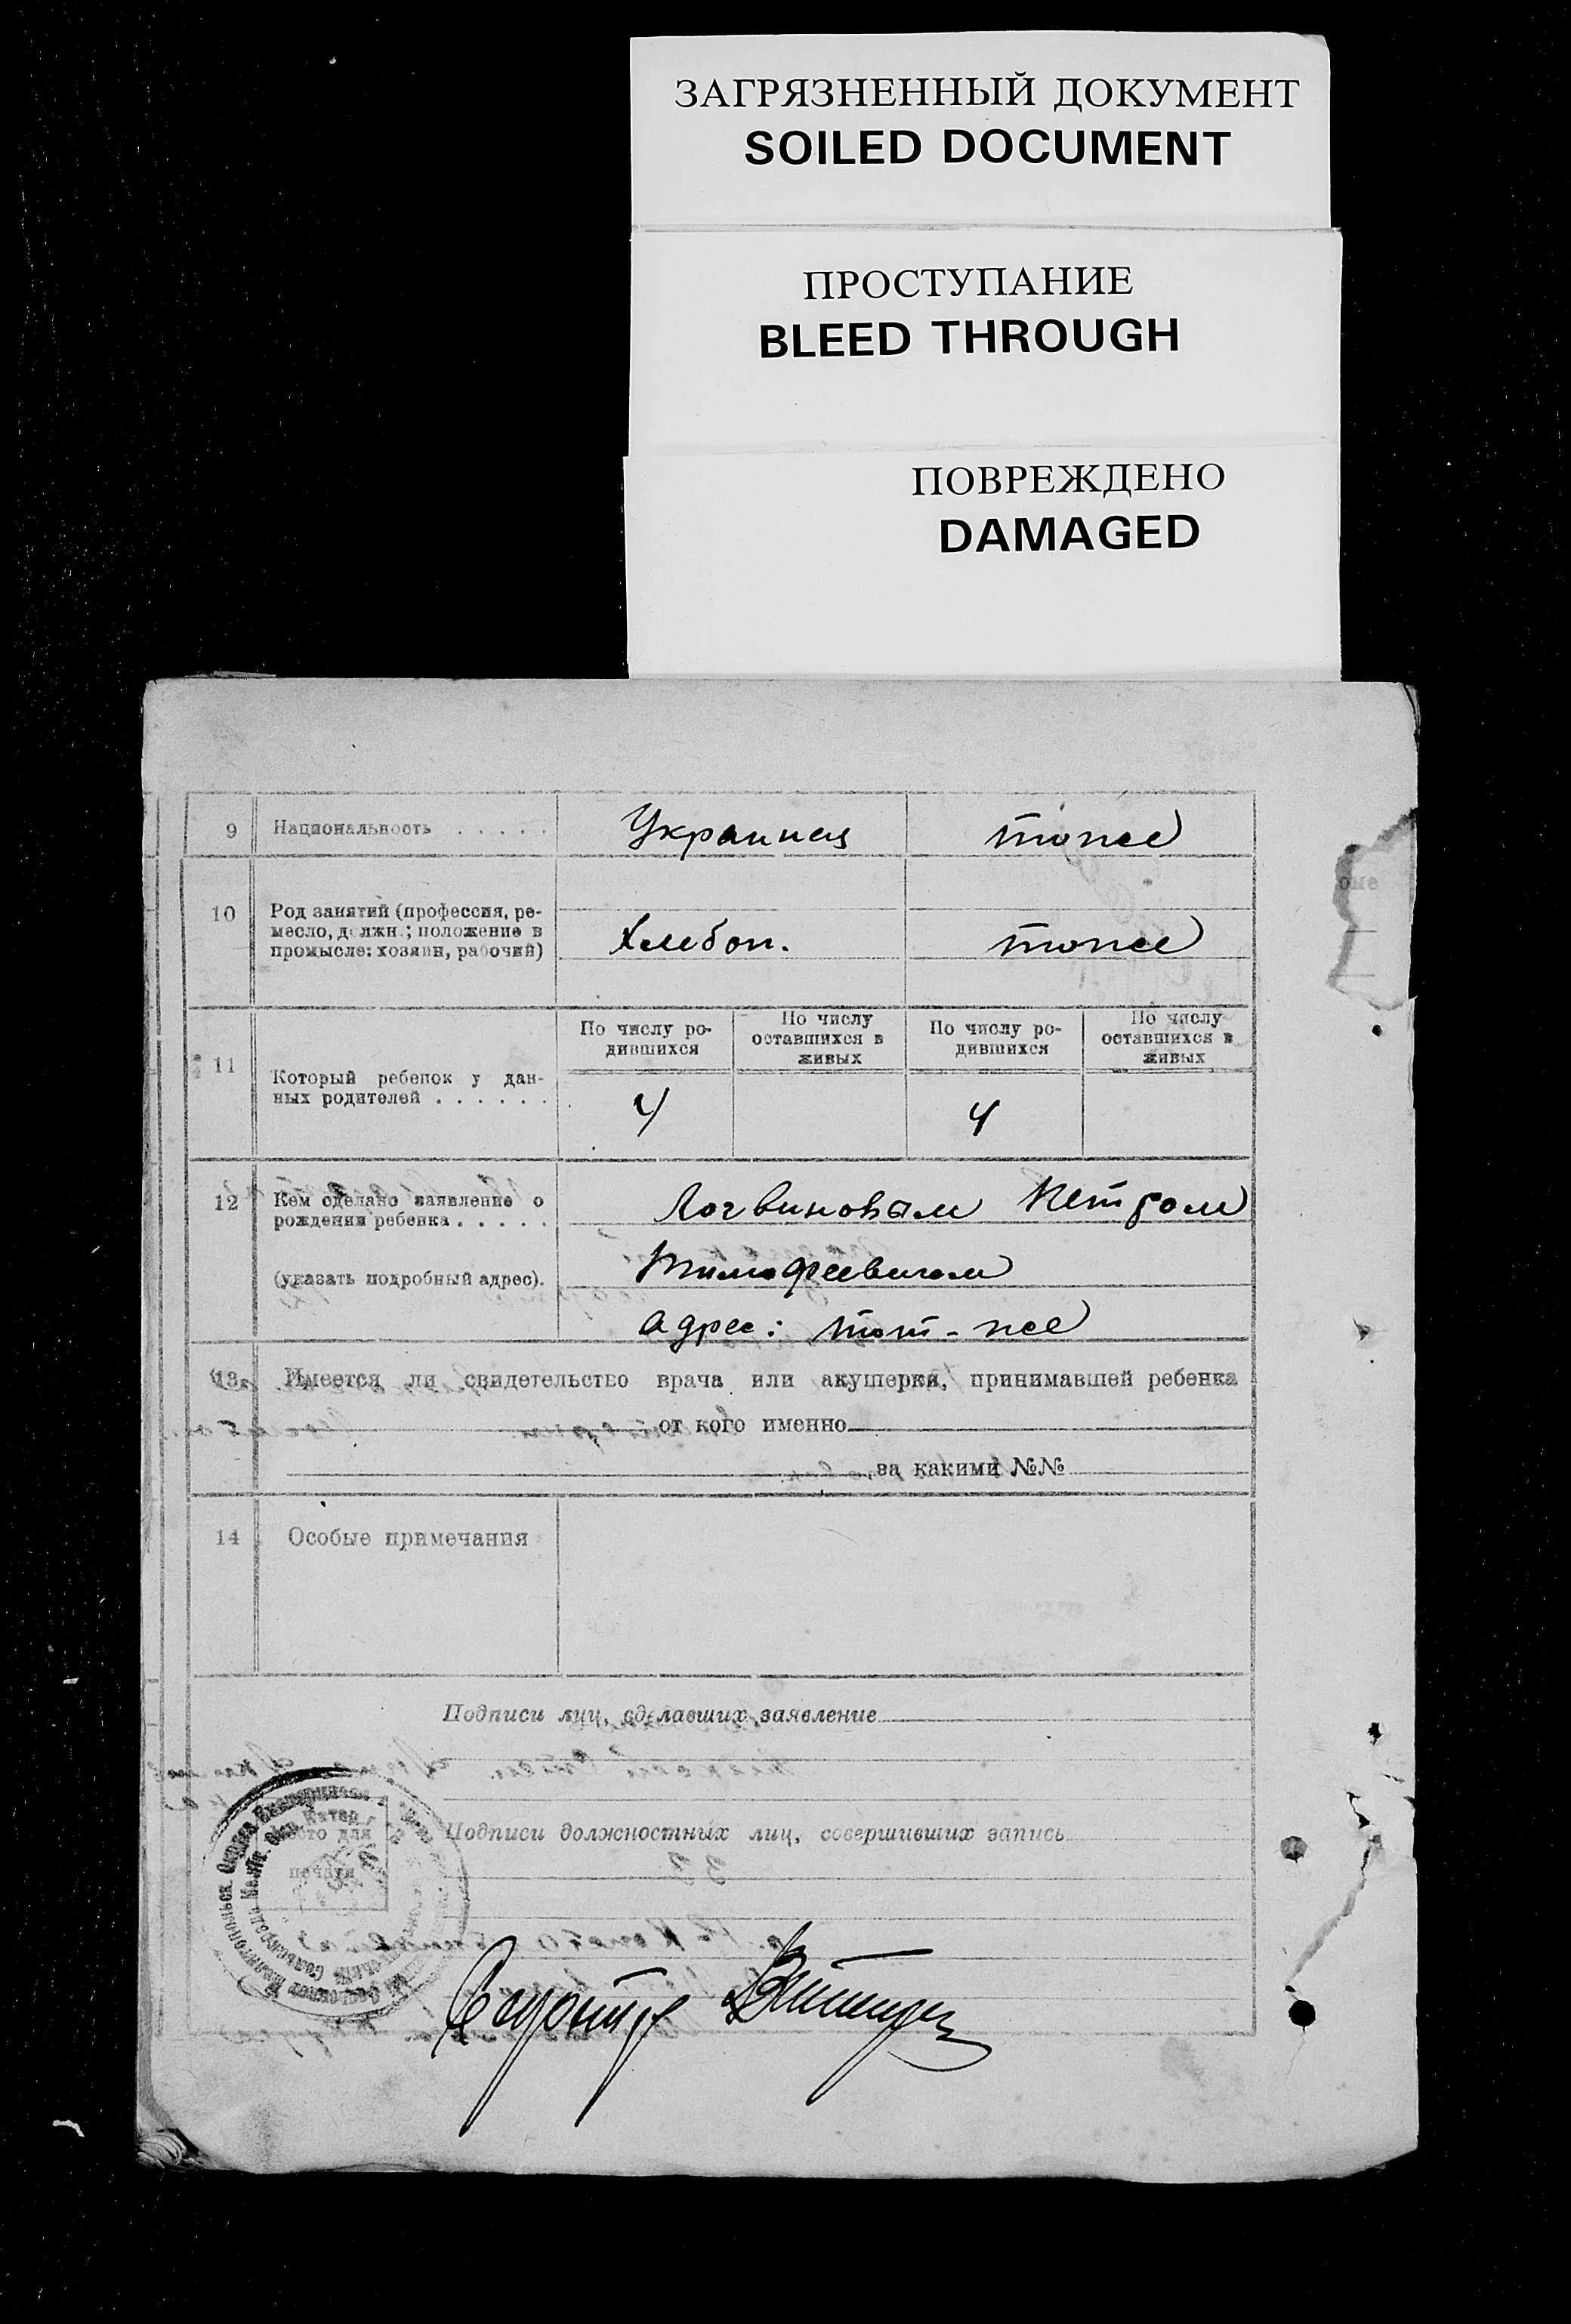 ЗАГРЯЗНЕННЫЙ ДОКУМЕНТ
SOILED DOCUMENT
ПРОСТУПАНИЕ
BLEED THROUGH
ПОВРЕЖДЕНО
DAMAGED
9 Национальность . . . . . Украинец тоже
10 Род занятий (профессия, ре-
месло, должн.; положение в
промысле: хозяин, рабочий)
Хлебоп. тоже
11 Который ребенок у дан-
ных родителей . . . . . .
По числу ро-
дившихся
По числу
оставшихся в
живых
По числу ро-
дившихся
По числу
оставшихся в
живых
4 4
12 Кем сделано заявление о
рождении ребенка . . . . .
(указать подробный адрес).
Логвиновым Петром
Тимофеевичом
адрес: тот-же
13 Имеется ли свидетельство врача или акушерки, принимавшей ребенка
от кого именно
за какими №№
14 Особые примечания
Подписи лиц, сделавших заявление
Место для
печати
Подписи должностных лиц, совершивших запись